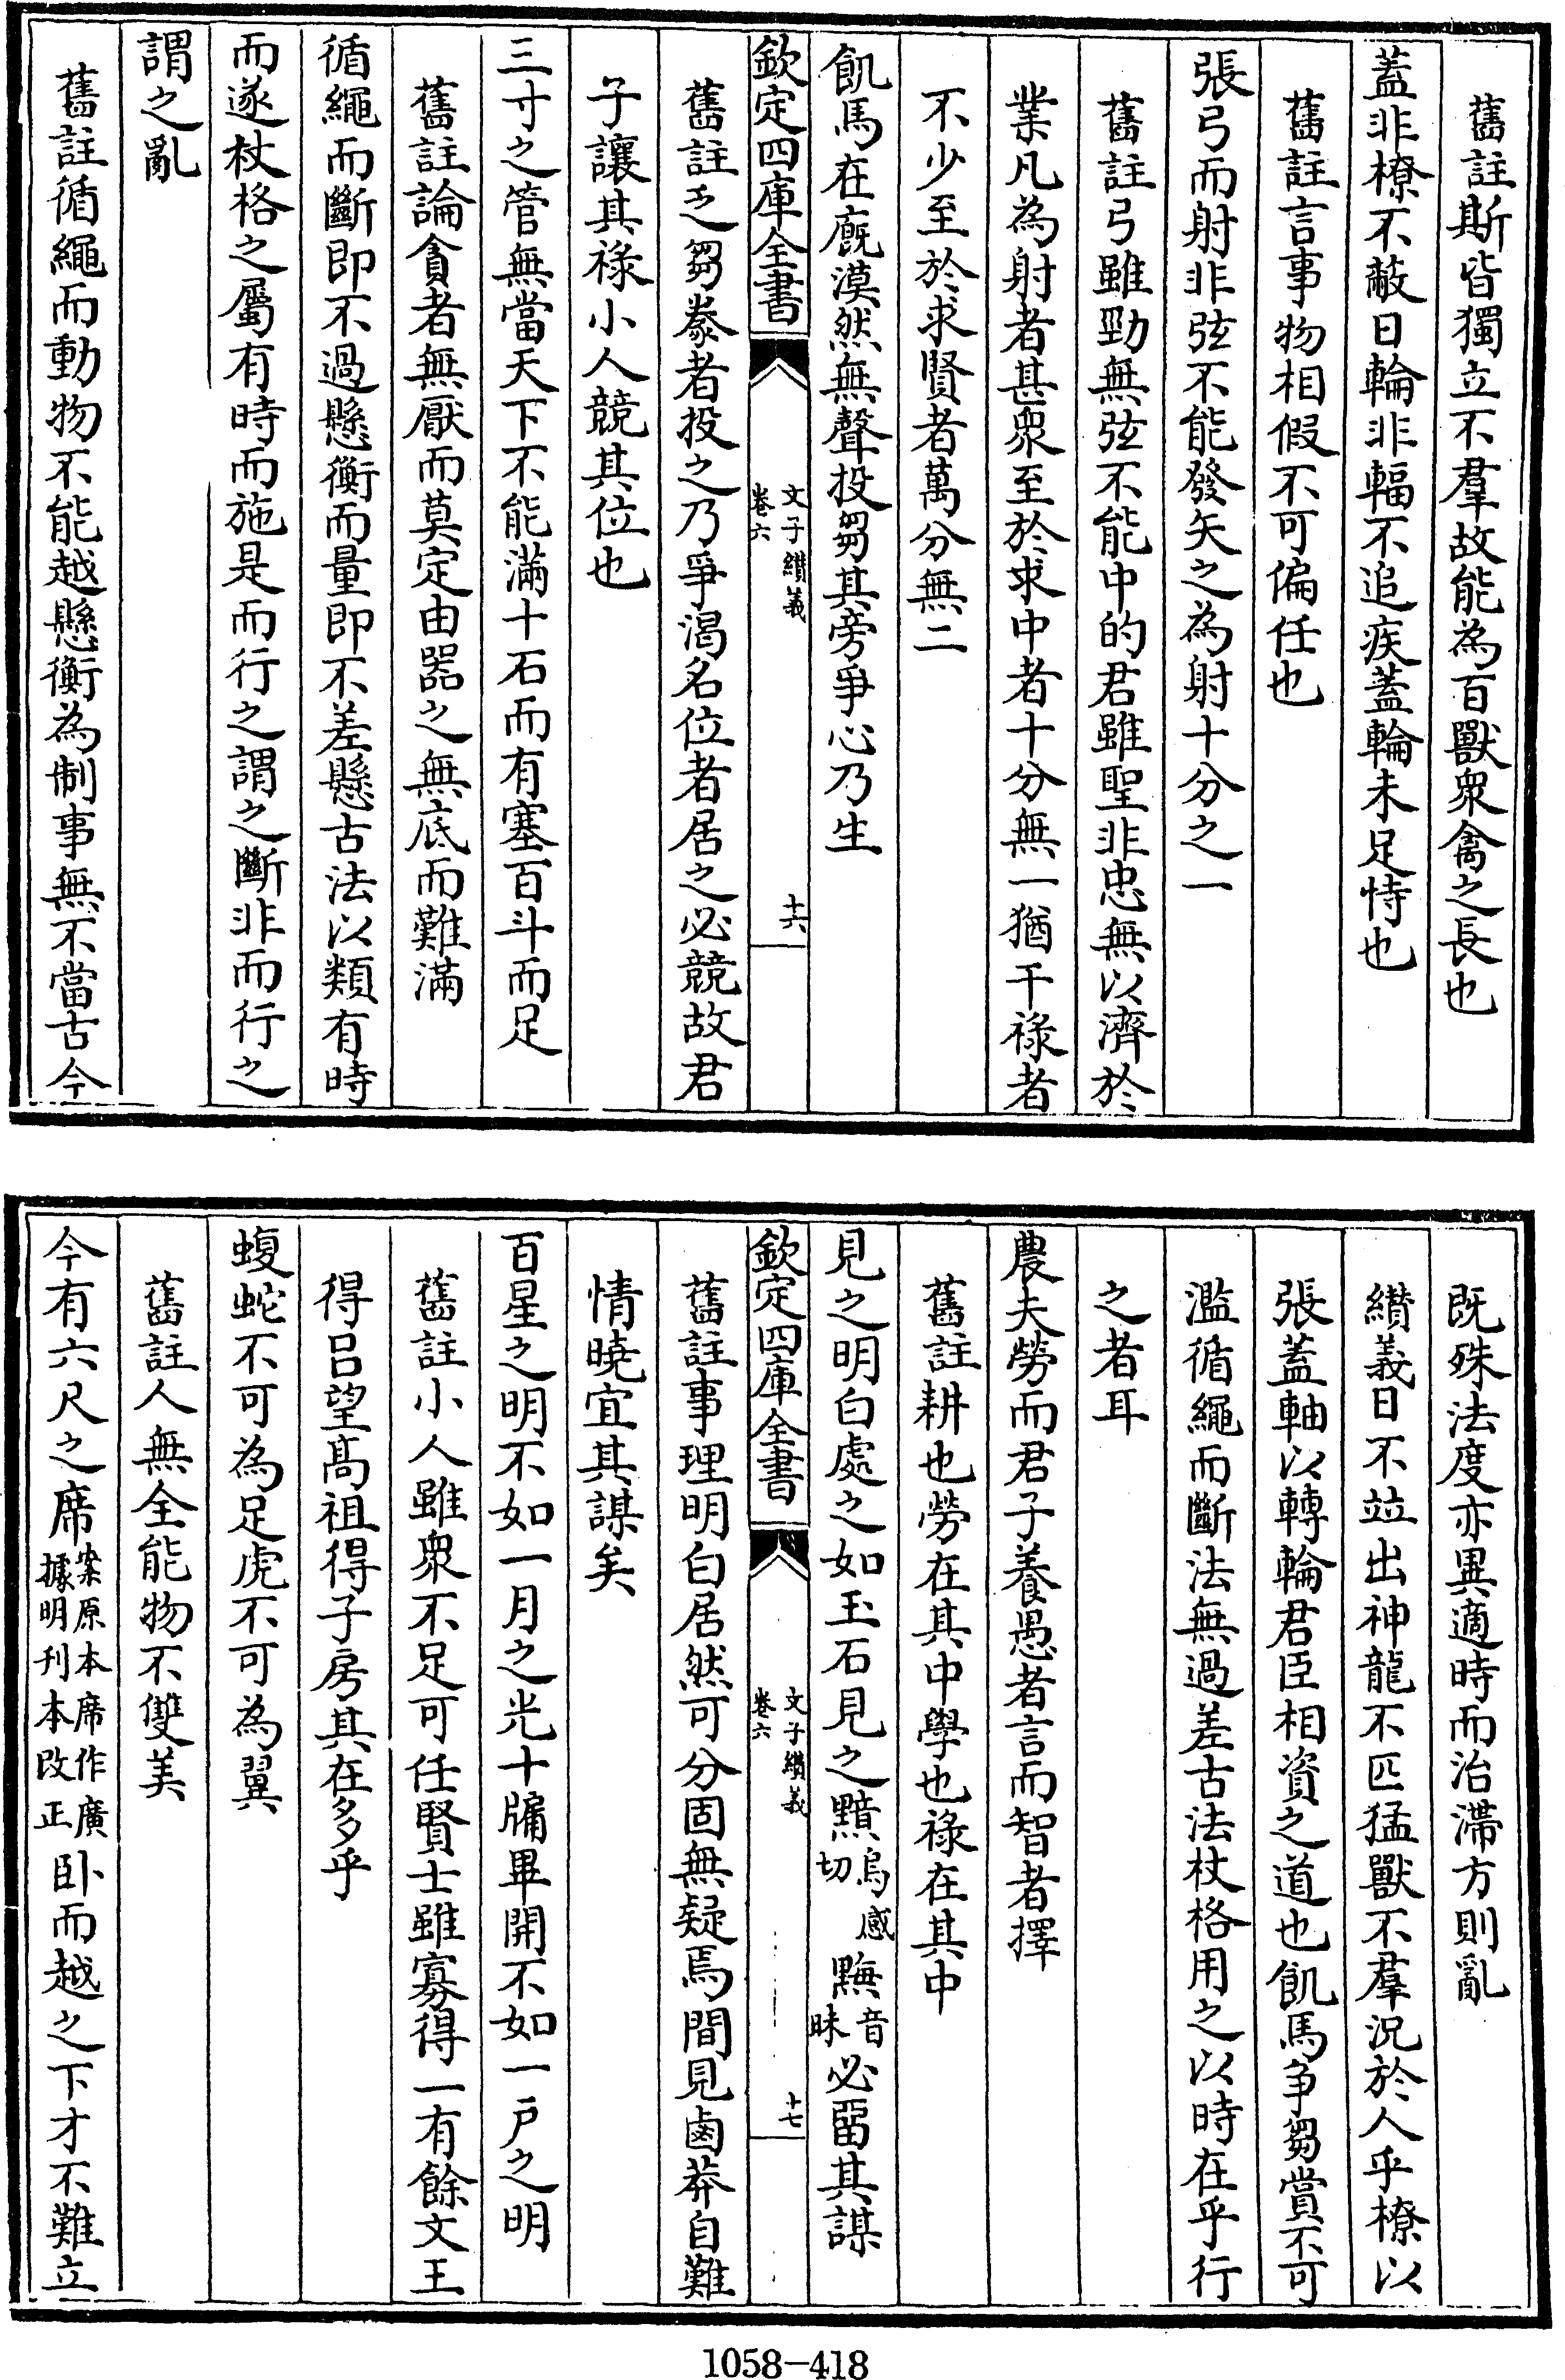 舊註斯皆獨立不羣故能為百獸衆禽之長也
蓋非橑不蔽日輪非輻不追疾蓋輪未足恃也
舊註言事物相假不可偏任也
張弓而射非弦不能發矢之為射十分之一
舊註弓雖勁無弦不能中的君雖聖非忠無以濟於
業凡為射者甚衆至於求中者十分無一猶干祿者
不少至於求賢者萬分無二
飢馬在廐漠然無聲投芻其旁爭心乃生
欽定四庫全書
文子纉義
卷六
十六
舊註乏芻豢者投之乃爭渴名位者居之必競故君
子讓其祿小人競其位也
三寸之管無當天下不能滿十石而有塞百斗而足
舊註論貪者無厭而莫定由器之無底而難滿
循繩而斷即不過懸衡而量即不差懸古法以類有時
而遂杖格之屬有時而施是而行之謂之斷非而行之
謂之亂
舊註循繩而動物不能越懸衡為制事無不當古今
既殊法度亦異適時而治滯方則亂
纉義曰不竝出神龍不匹猛獸不羣況於人乎橑以
張蓋軸以轉輪君臣相資之道也飢馬争芻賞不可
濫循繩而斷法無過差古法杖格用之以時在乎行
之者耳
農夫勞而君子養愚者言而智者擇
舊註耕也勞在其中學也祿在其中
見之明白處之如玉石見之黯烏感切黣音昧必畱其謀
欽定四庫全書
文子纉義
卷六
十七
舊註事理明白居然可分固無疑焉間見鹵莽自難
情曉宜其謀矣
百星之明不如一月之光十牖畢開不如一戸之明
舊註小人雖衆不足可任賢士雖寡得一有餘文王
得呂望髙祖得子房其在多乎
蝮蛇不可為足虎不可為翼
舊註人無全能物不雙美
今有六尺之席案原本席作廣據明刊本改正卧而越之下才不難立
1058-418